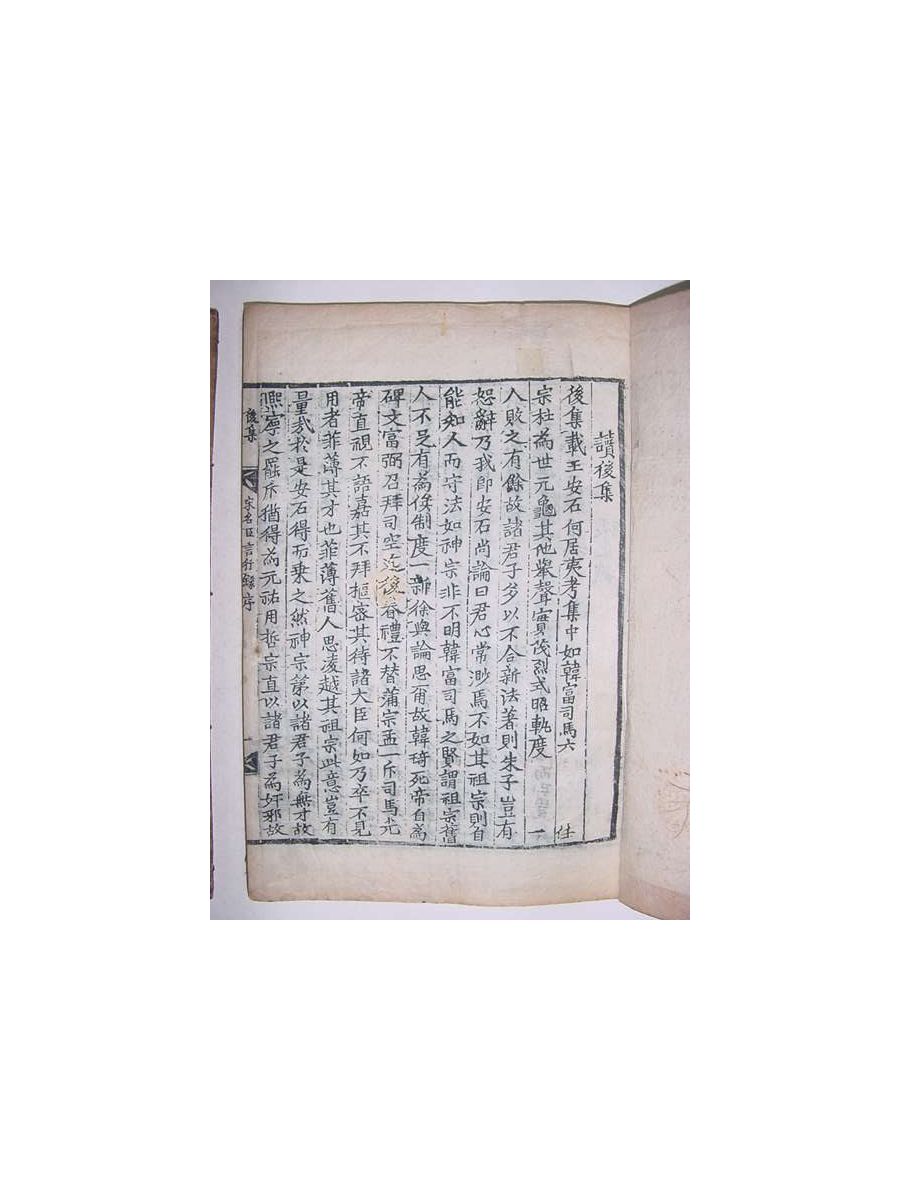 讀後集
後集載王安石何居夷考集中如韓富司馬六
宗杜為世元龜其他犖聲實茂烈式昭軌度
入敗之有餘故諸君子多以不合新法著則朱子豈有
恕辭乃我即安石尚論曰君心常渺焉不如其祖宗則自
能知人而守法如神宗非不明韓富司馬之賢謂祖宗舊
人不足有為俟制度一新徐與論思爾故韓琦死帝自為
碑文富弼召拜司空後眷禮不替蒲宗孟一斥司馬光
帝直視不語嘉其不拜樞密其待諸大臣何如乃卒不見
用者菲薄其才也菲薄舊人思凌越其祖宗此意豈有
量哉於是安石得而乘之然神宗第以諸君子為無才故
熙寧之罷斥猶得為元祐用哲宗直以諸君子為奸邪故
後集
宋名臣言行錄序
一